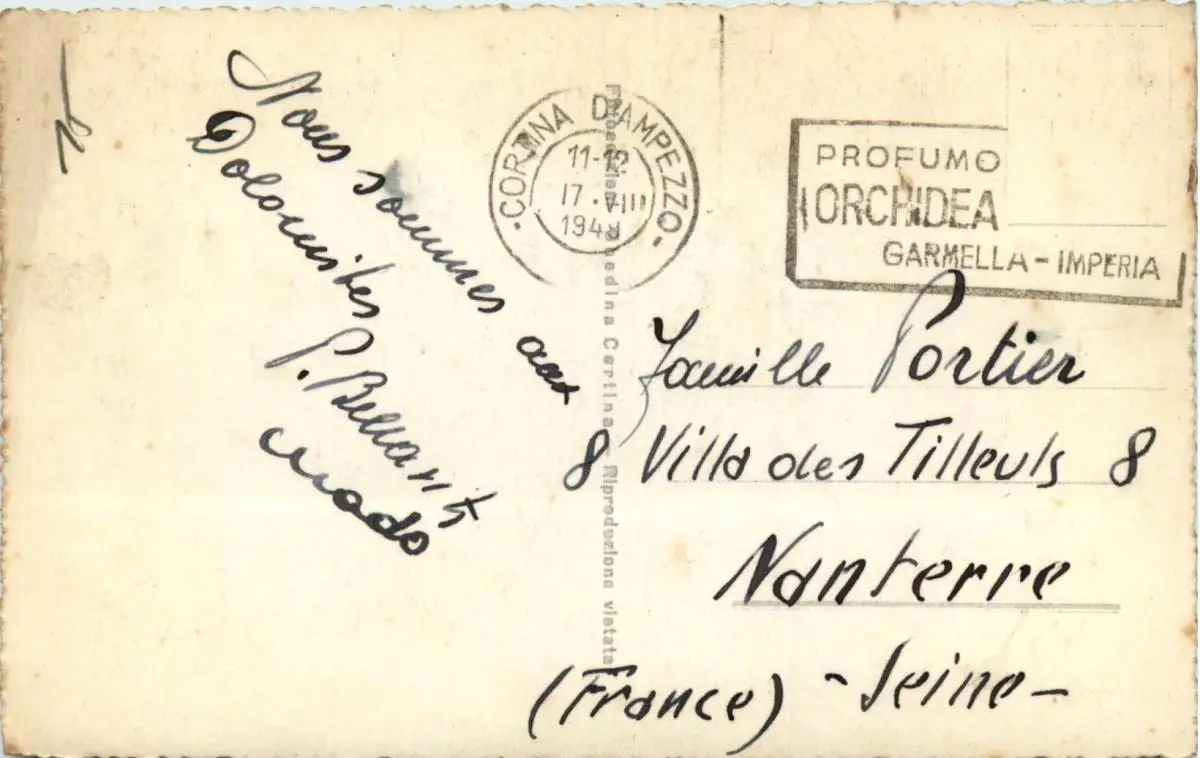 Nous sommes aux
Dolomites
CORTINA D'AMPEZZO
11-12
17.VIII
194
PROFUMO
ORCHIDEA
GARMELLA - IMPERIA
Famille Portier
8 Villa des Tilleuls 8
Nanterre
(France) - Seine -
Ghedina Cortina - Riproduzione vietata